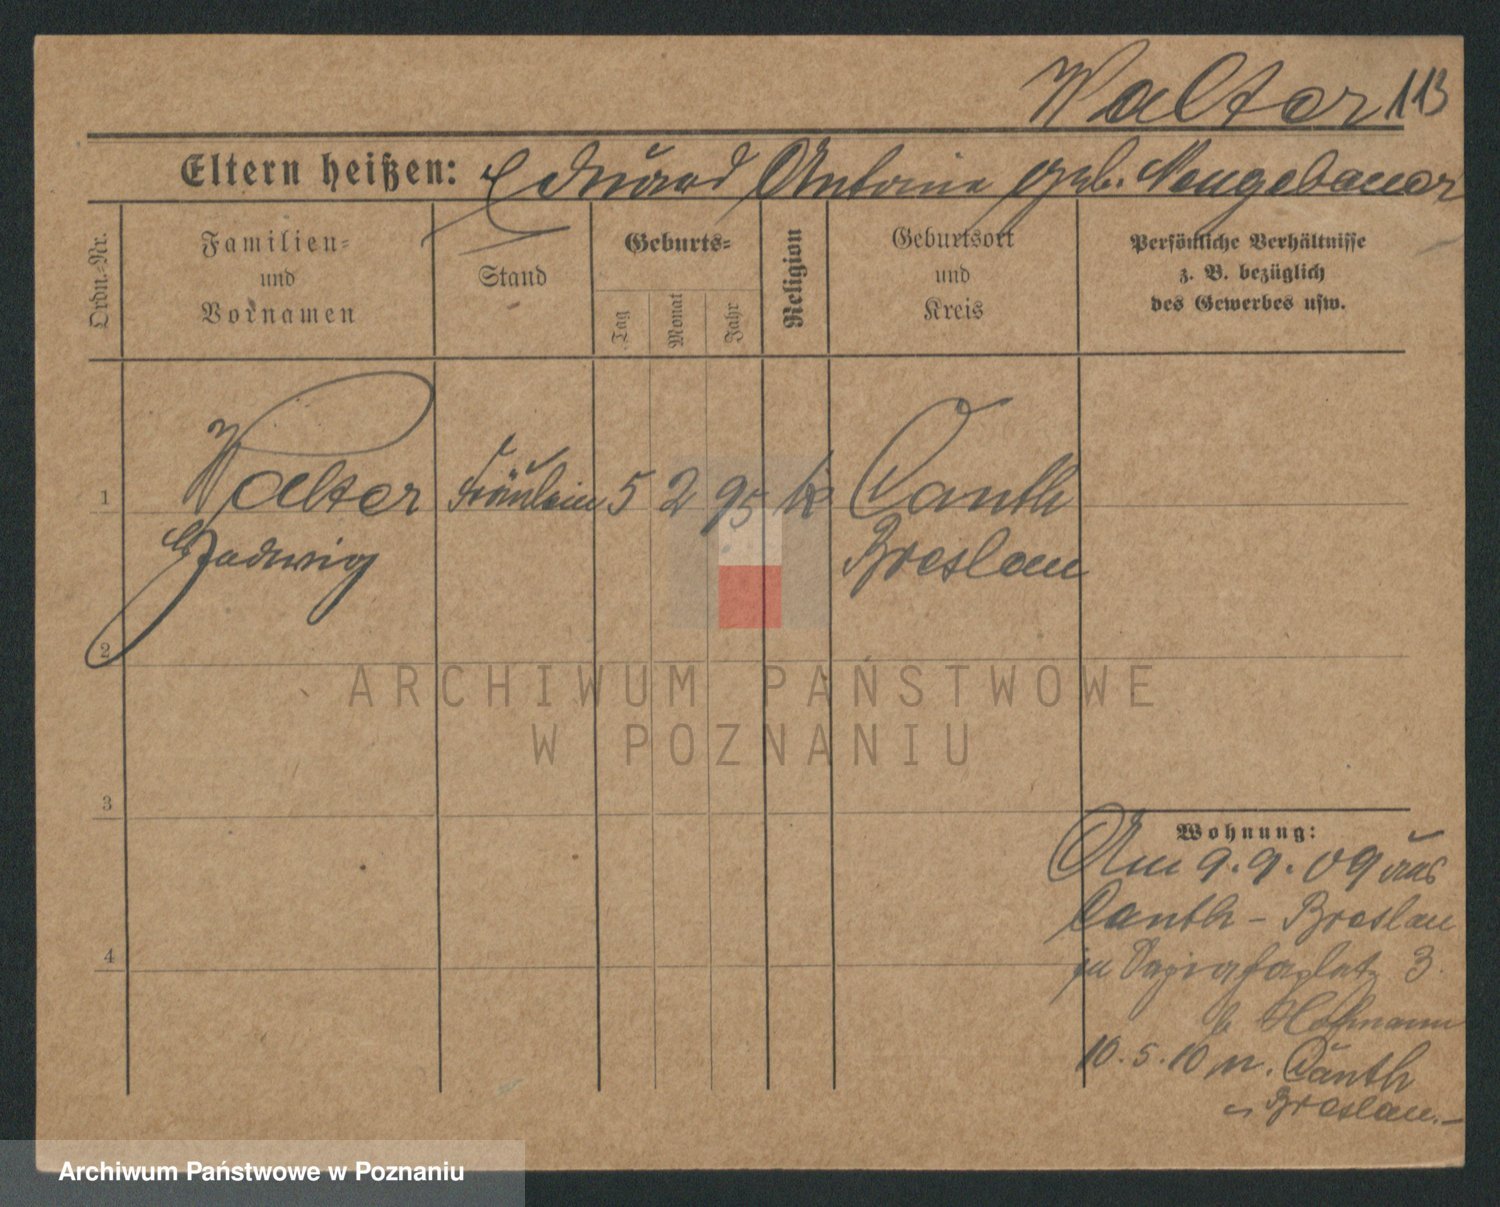 Walter 113
Eltern heißen: Eduard Antonie geb. Neugebauer
Ordn.-Nr.
Familien-
und
Vornamen
Stand
Geburts-
Tag
Monat
Jahr
Religion
Geburtsort
und
Kreis
Persönliche Verhältnisse
z. B. bezüglich
des Gewerbes usw.
1
Walter Fräulein 5 2 95 k Canth
Hedwig Breslau
2
3
4
Wohnung:
Am 9.9.09 aus
Canth - Breslau
zu 3
b Hoffmann
10.5.10 n. Canth
Breslau.
ARCHIWUM PAŃSTWOWE
W POZNANIU
Archiwum Państwowe w Poznaniu